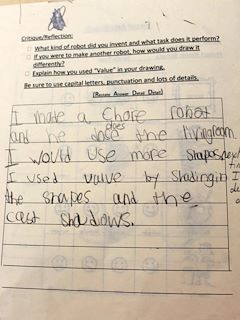 Critique/Reflection:
What kind of robot did you invent and what task does it perform?
If you were to make another robot, how would you draw it
differently?
Explain how you used "Value" in your drawing.
Be sure to use capital letters, punctuation and lots of details.
(Restate Answer Detail Detail)
I made a chore robot
does
and he the livingroom
I would use more shapes
I used value by shading in
the shapes and the
cast shadows.